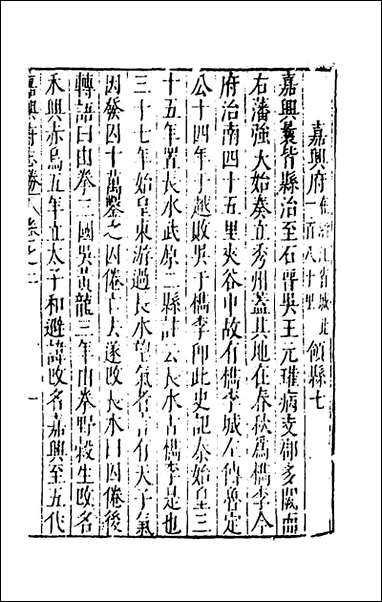 嘉興府 領縣七
嘉興㬢皆縣治至石晉吳王元瓘病支郡多闕而
右藩強大始奏立秀州蓋其地在春秋爲檇李今
府治南四十五里夾谷中故有檇李城左傳魯定
公十四年于越敗吳于檇李卽此史記秦始皇三
十五年置長水武原二縣註云長水古檇李是也
三十七年始皇東游過長水望氣者言有天子氣
因發囚十萬鑿之囚倦亡去遂改長水曰囚倦後
轉語曰由拳三國吳黃龍三年由拳野穀生改名
禾興赤烏五年立太子和避諱改名嘉興至五代
嘉興府志卷八卷之二 一